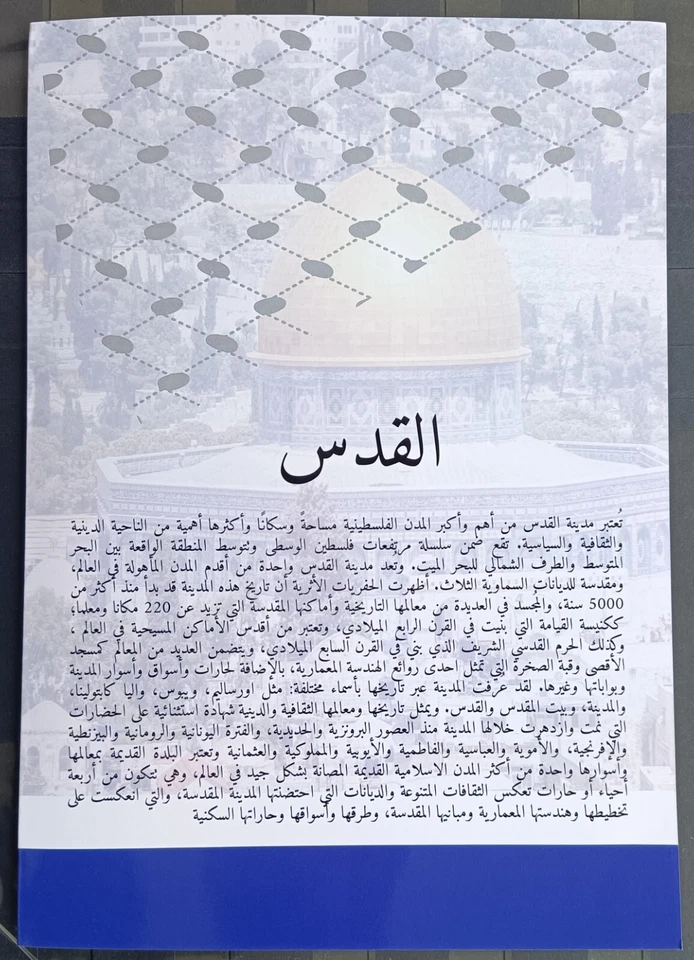 القدس
تُعتبر مدينة القدس من أهم وأكبر المدن الفلسطينية مساحةً وسكانًا وأكثرها أهمية من الناحية الدينية
والثقافية والسياسية. تقع ضمن سلسلة مرتفعات فلسطين الوسطى وتتوسط المنطقة الواقعة بين البحر
المتوسط والطرف الشمالي للبحر الميت. وتعد مدينة القدس واحدة من أقدم المدن المأهولة في العالم،
ومقدسة للديانات السماوية الثلاث. أظهرت الحفريات الأثرية أن تاريخ هذه المدينة قد بدأ منذ أكثر من
5000 سنة، والمُجسد في العديدة من معالمها التاريخية وأماكنها المقدسة التي تزيد عن 220 مكانا ومعلما؛
ككنيسة القيامة التي بنيت في القرن الرابع الميلادي، وتعتبر من أقدس الأماكن المسيحية في العالم ،
وكذلك الحرم القدسي الشريف الذي بني في القرن السابع الميلادي، ويتضمن العديد من المعالم كمسجد
الأقصى وقبة الصخرة التي تمثل احدى روائع الهندسة المعمارية، بالإضافة لحارات وأسواق وأسوار المدينة
وبواباتها وغيرها. لقد عرفت المدينة عبر تاريخها بأسماء مختلفة: مثل اورساليم، ويبوس، واليا كابتولينا،
والمدينة، وبيت المقدس والقدس. ويمثل تاريخها ومعالمها الثقافية والدينية شهادة استثنائية على الحضارات
التي نمت وازدهرت خلالها المدينة منذ العصور البرونزية والحديدية، والفترة اليونانية والرومانية والبيزنطية
والإفرنجية، والأموية والعباسية والفاطمية والأيوبية والمملوكية والعثمانية وتعتبر البلدة القديمة بمعالمها
وأسوارها واحدة من أكثر المدن الاسلامية القديمة المصانة بشكل جيد في العالم، وهي تتكون من أربعة
أحياء أو حارات تعكس الثقافات المتنوعة والديانات التي احتضنتها المدينة المقدسة، والتي انعكست على
تخطيطها وهندستها المعمارية ومبانيها المقدسة، وطرقها وأسواقها وحاراتها السكنية